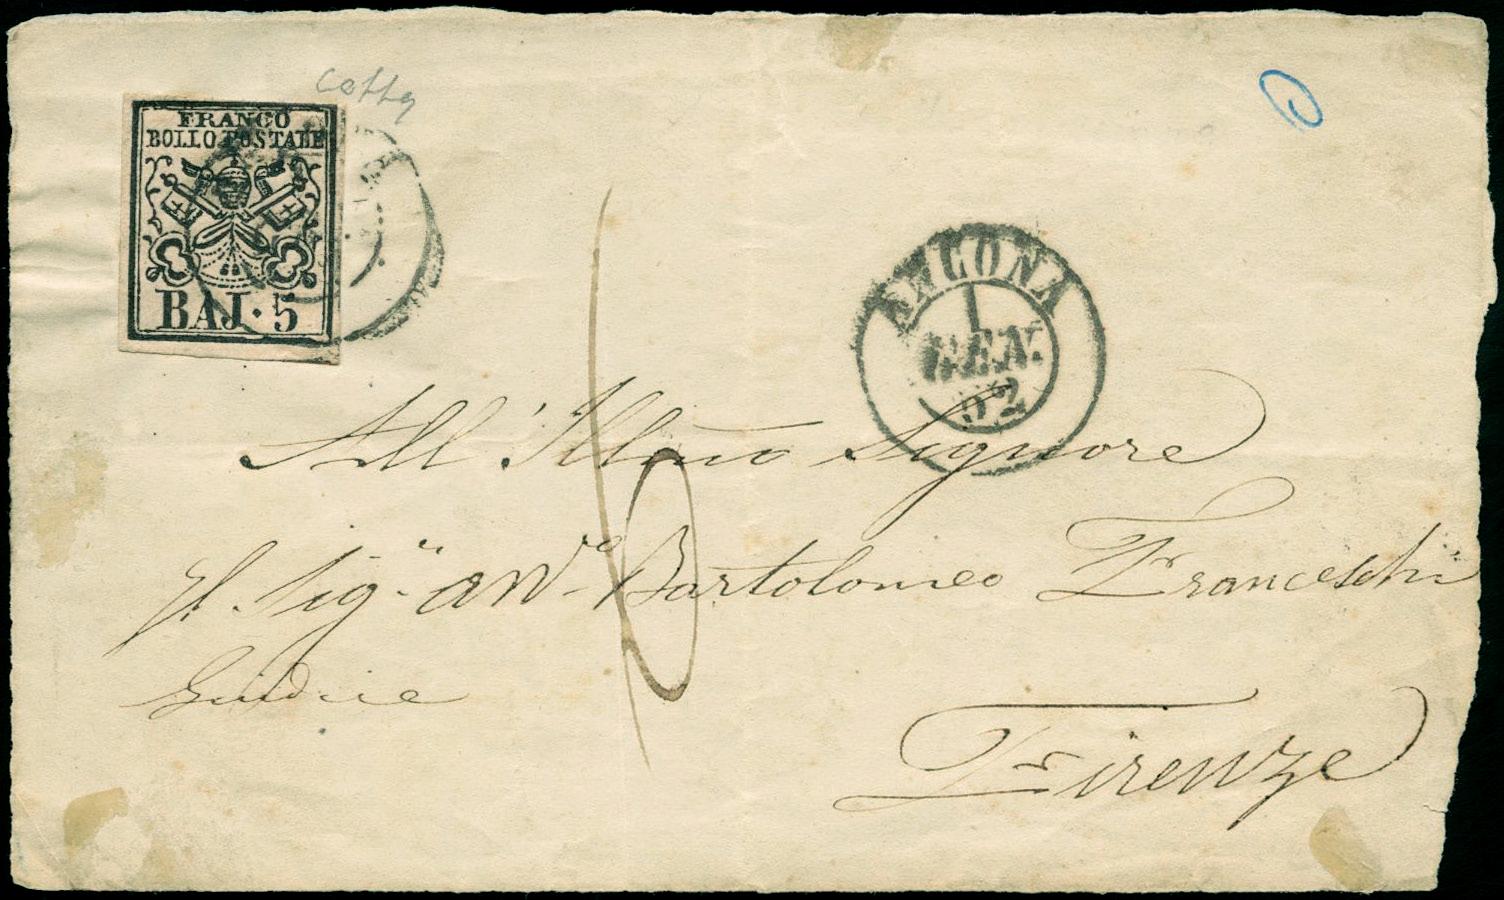 cotta
FRANCO
BOLLO POSTALE
BAJ. 5
ANCONA
1
GEN.
52
All' Illmo Signore
Il Sig.r Avv.o Bartolomeo Franceschi
Giudice
Firenze